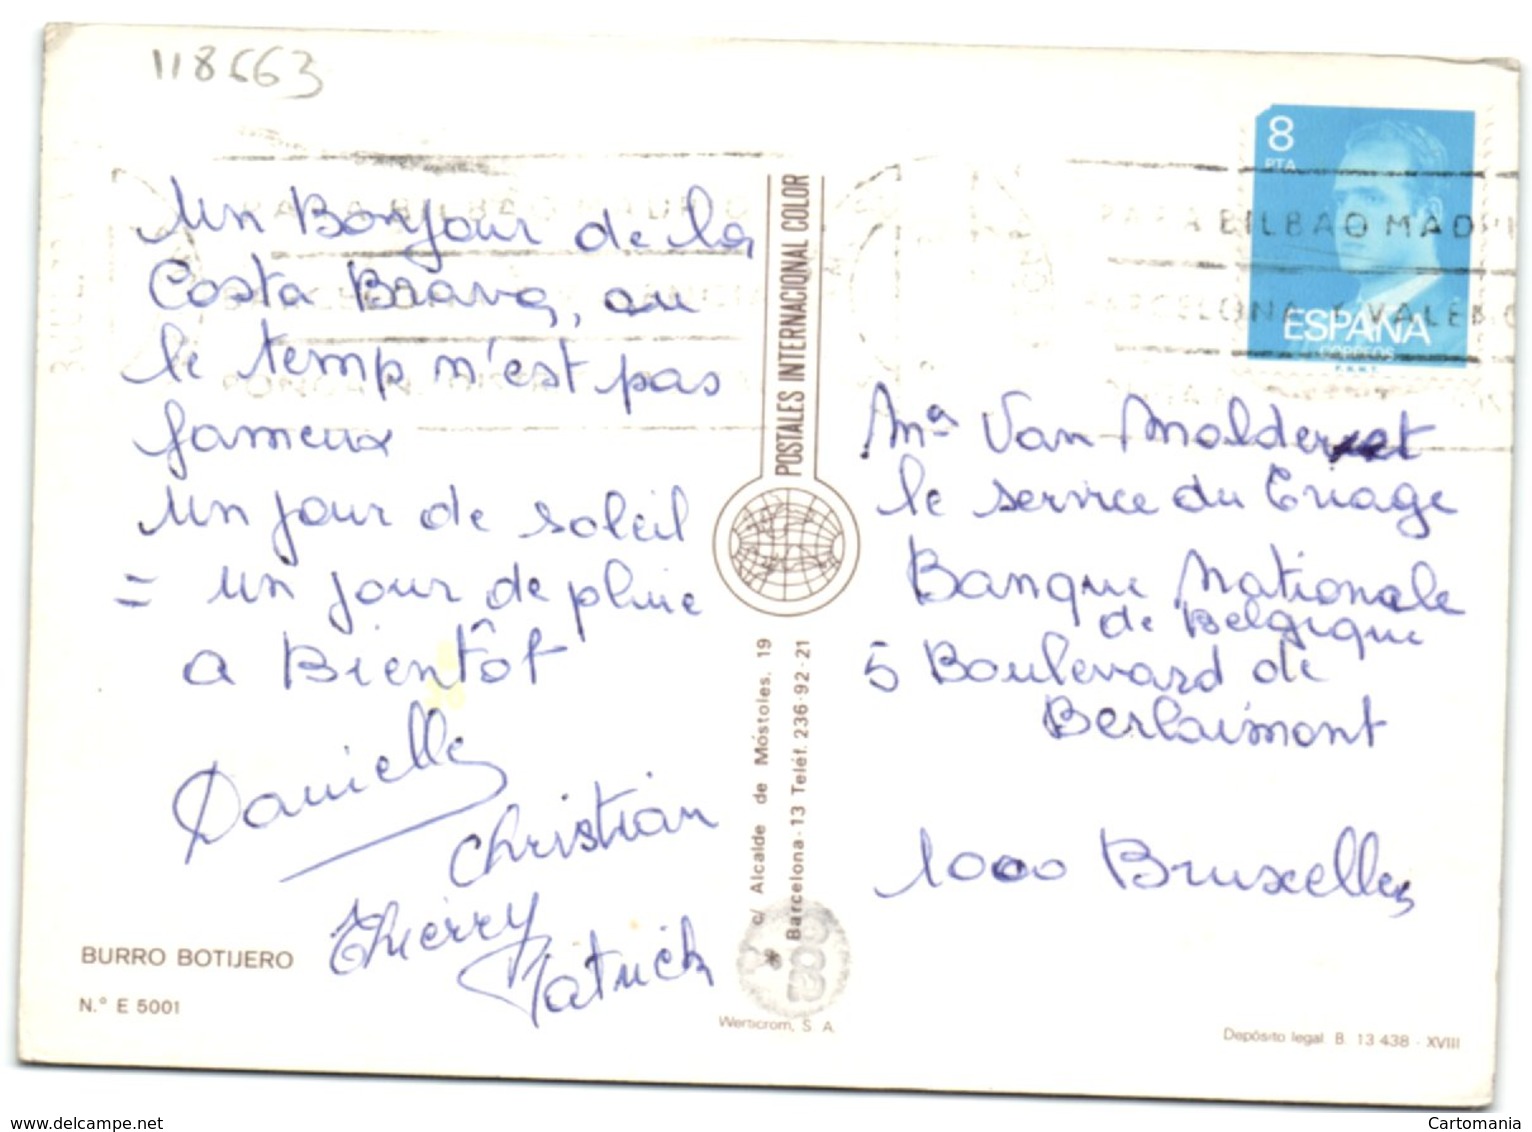 118663
Un Bonjour de la
Costa Brava, ou
le temp n'est pas
fameux
Un jour de soleil
= un jour de pluie
a Bientôt
Danielle
Christian
Thierry
Patrick
BURRO BOTIJERO
N.º E 5001
POSTALES INTERNACIONAL COLOR
c/ Alcalde de Móstoles, 19
Barcelona-13 Teléf. 236-92-21
Werticrom, S. A.
8
PTA
ESPAÑA
CORREOS
F.N.M.T.
PARA BILBAO MADRI
BARCELONA Y VALENC
Van Molder et
le service du Triage
Banque Nationale
de Belgique
5 Boulevard de
Berlaimont
1000 Bruxelles
Depósito legal B. 13 438 - XVIII
www.delcampe.net
Cartomania